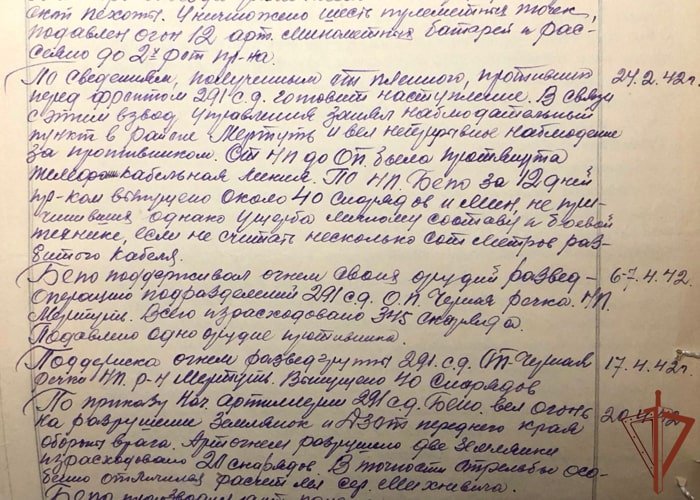 рот пехоты. Уничтожено шесть пулеметных точек,
подавлен огон 12 арт. минометных батарей и рас-
сеяно до 2х рот пр-ка.
По сведениям, полученным от пленного, противник 24.2.42г.
перед фронтом 291 с.д. готовит наступление. В связи
с этим взвод управления занял наблюдательный
пункт в районе Мертуть и вел непрерывное наблюдение
за противником. От НП до ОП. была протянута
кабельная линия. По НП. Бепо за 12 дней
пр-ком выпущено около 40 снарядов и мин, не при-
чинивших однако ущерба личному составу и боевой
технике, если не считать несколько сот метров раз-
битого кабеля.
Бепо поддерживал огнем своих орудий развед- 6-7.4.42г.
операцию подразделений 291 с.д. О.П. Черная речка. НП.
Мертуть. Всего израсходовано 345 снаряда.
Подавлено одно орудие противника.
Поддержка огнем разведгруппы 291 с.д. ОП Черная 17.4.42г.
речка НП. р-н Мертуть. Выпущено 40 снарядов
По приказу Нач. артиллерии 291 с.д. Бепо. вел огонь 20.4.42
на разрушение землянок и ДЗОТ переднего края
обороны врага. Артогнем разрушено две землянки
израсходовано 20 снарядов. В точности стрельбы осо-
бенно отличился расчет мл. сер. Михневича.
Бепо производил